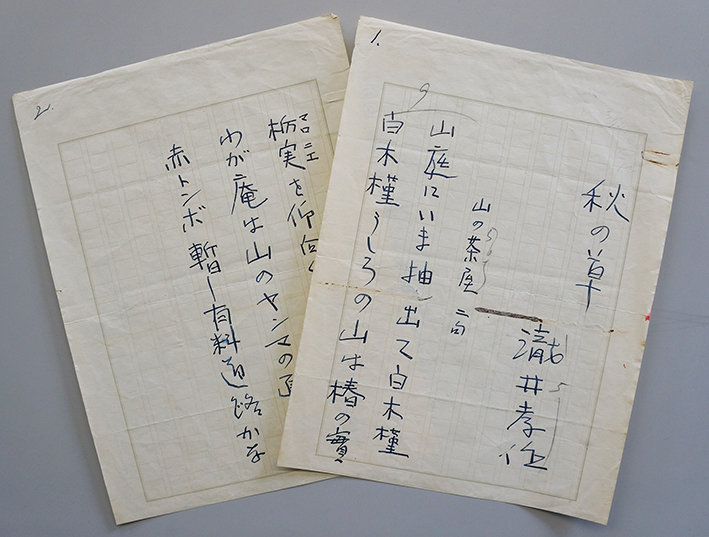 1.
9
秋の草
瀧井孝作
山の茶屋 二句
山庭にいま抽ん出て白木槿
白木槿うしろの山は椿の實
2.
マロニエ
栃実を仰向
わが庵は山のヤンマの
赤トンボ暫し有料道路かな